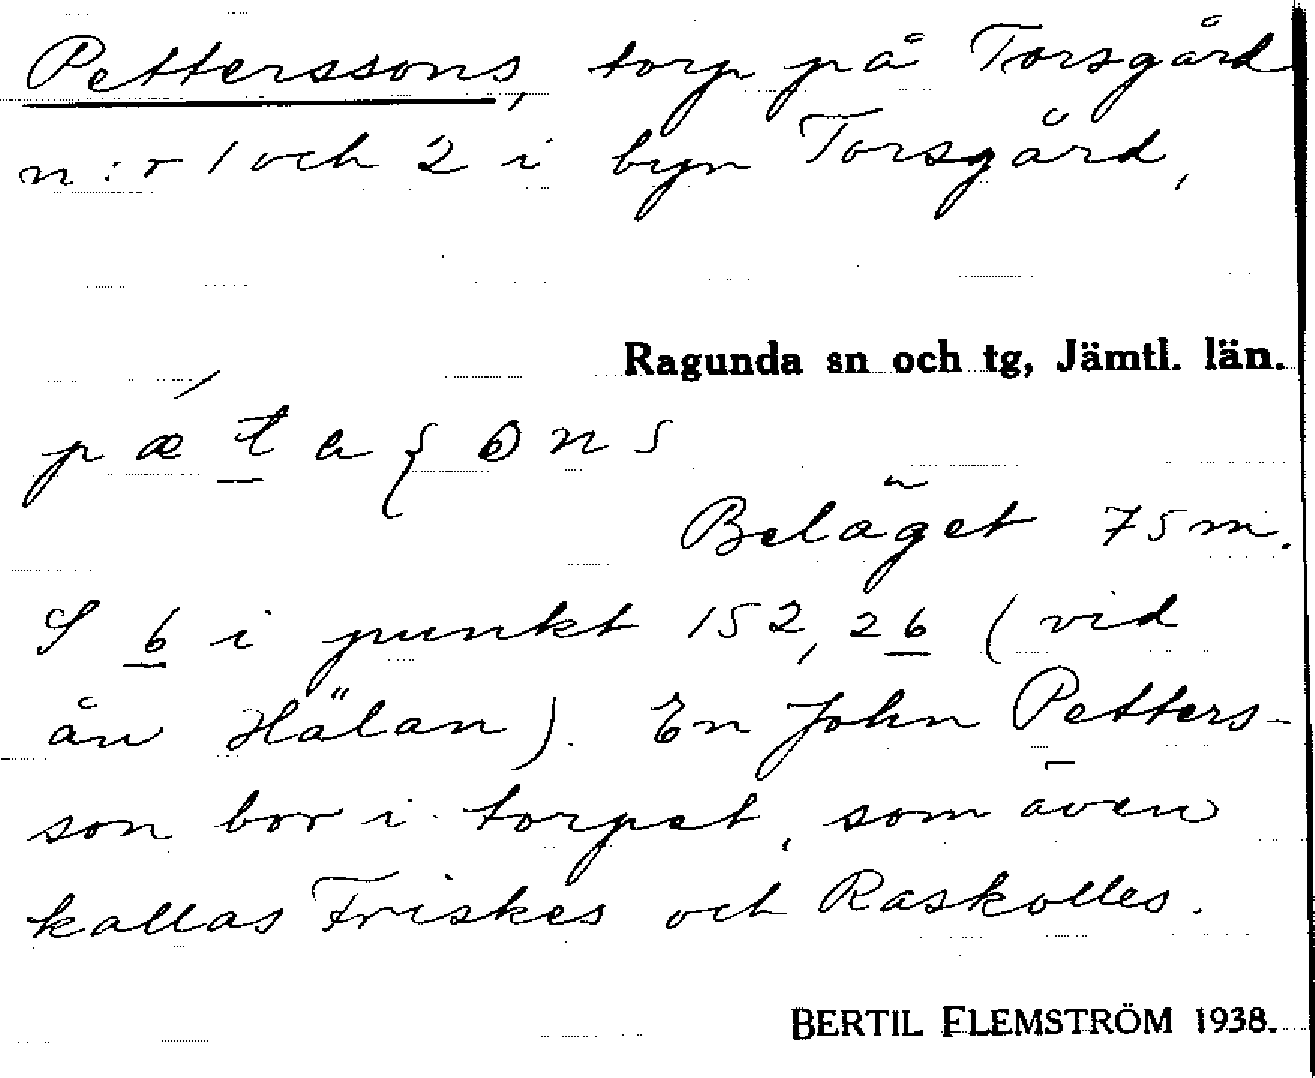 Petterssons, torp på Torsgård
n:r 1 och 2 i byn Torsgård,
Ragunda sn och tg, Jämtl. län.
Beläget 75 m.
S 6 i punkt 152,26 (vid
ån Hälan). En John Petters-
son bor i torpet, som även
kallas Friskes och Raskolles.
BERTIL FLEMSTRÖM 1938.